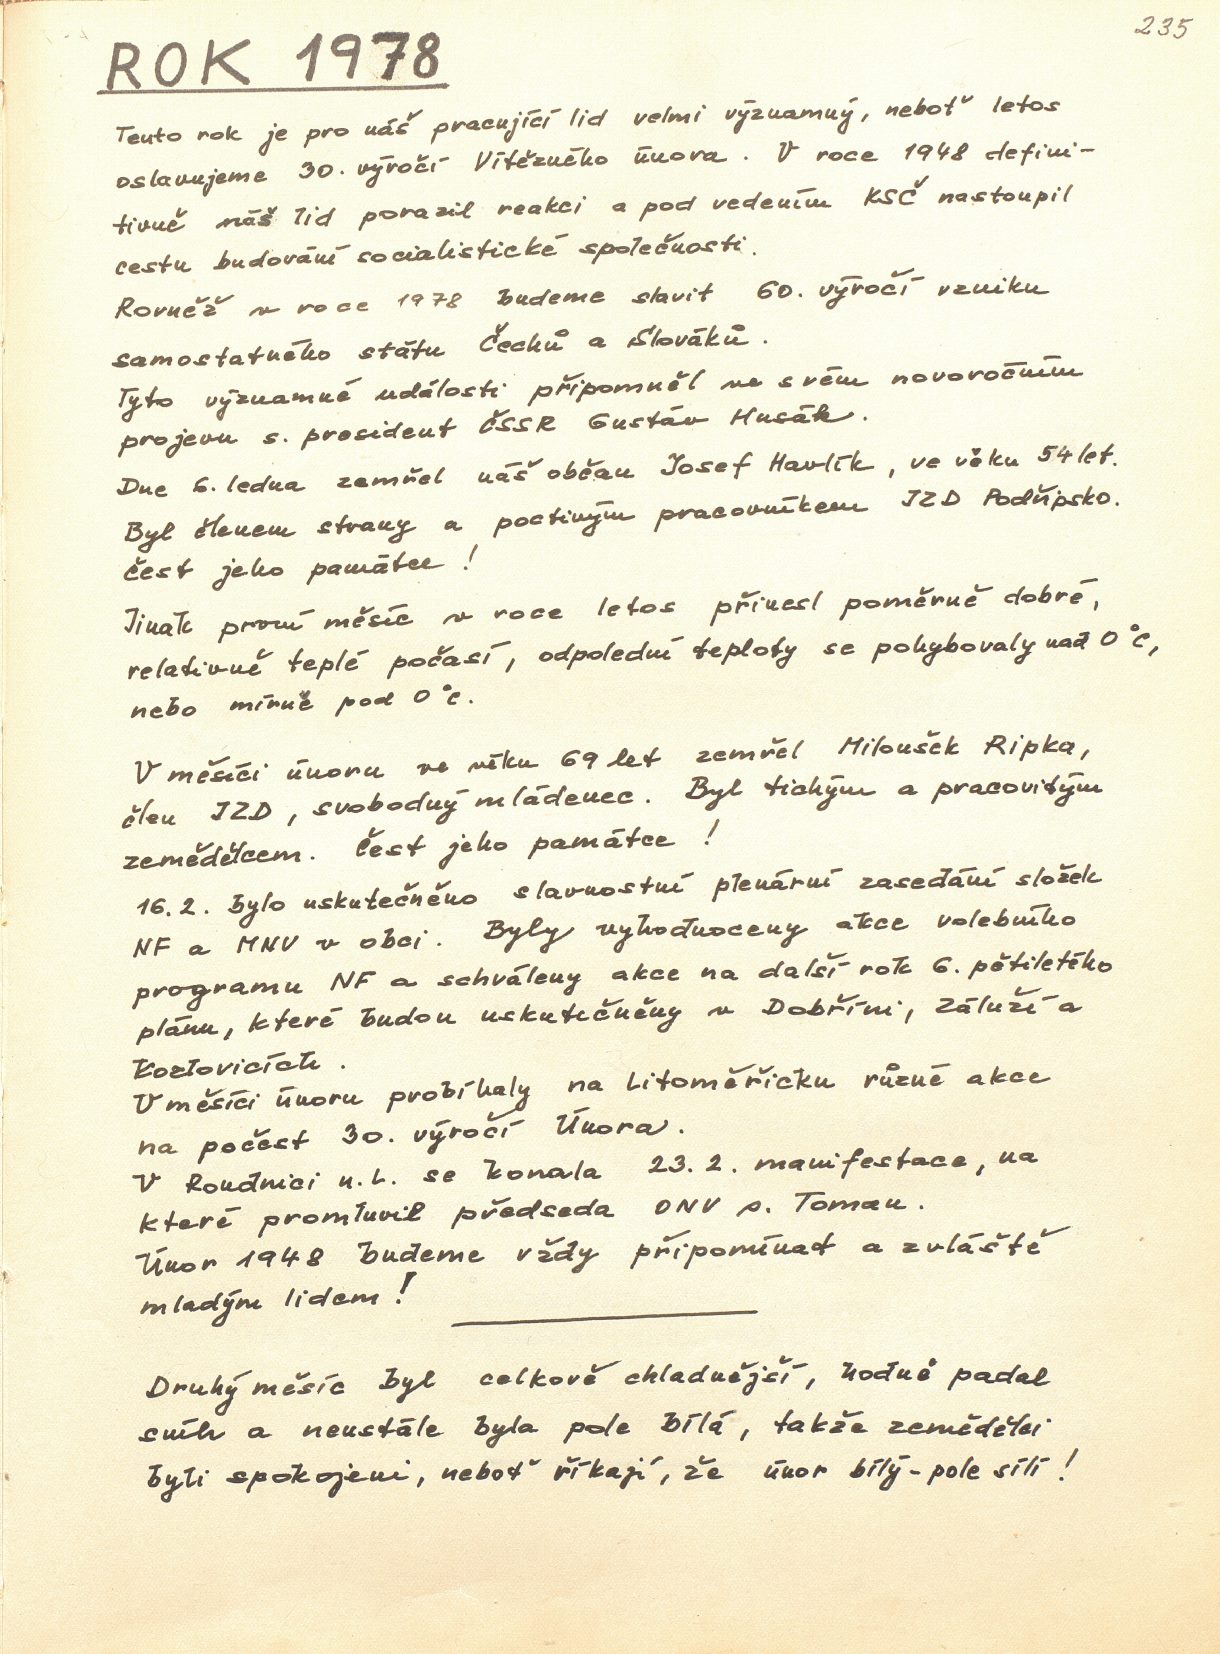 235
ROK 1978
Tento rok je pro náš pracující lid velmi významný, neboť letos
oslavujeme 30. výročí Vítězného února. V roce 1948 defini-
tivně náš lid porazil reakci a pod vedením KSČ nastoupil
cestu budování socialistické společnosti.
Rovněž v roce 1978 budeme slavit 60. výročí vzniku
samostatného státu Čechů a Slováků.
Tyto významné události připomněl ve svém novoročním
projevu s. president ČSSR Gustáv Husák.
Dne 6. ledna zemřel náš občan Josef Havlík, ve věku 54 let.
Byl členem strany a poctivým pracovníkem JZD Podřipsko.
čest jeho památce!
Jinak první měsíc v roce letos přinesl poměrně dobré,
relativně teplé počasí, odpolední teploty se pohybovaly nad 0°C,
nebo mírně pod 0°C.
V měsíci únoru ve věku 69 let zemřel Miloušek Ripka,
člen JZD, svobodný mládenec. Byl tichým a pracovitým
zemědělcem. Čest jeho památce!
16. 2. bylo uskutečněno slavnostní plenární zasedání složek
NF a MNV v obci. Byly vyhodnoceny akce volebního
programu NF a schváleny akce na další rok 6. pětiletého
plánu, které budou uskutečněny v Dobříni, Záluží a
Kozlovicích.
V měsíci únoru probíhaly na Litoměřicku různé akce
na počest 30. výročí Února.
V Roudnici n. L. se konala 23. 2. manifestace, na
které promluvil předseda ONV s. Toman.
Únor 1948 budeme vždy připomínat a zvláště
mladým lidem!
Druhý měsíc byl celkově chladnější, hodně padal
sníh a neustále byla pole bílá, takže zemědělci
byli spokojeni, neboť říkají, že únor bílý - pole sílí!